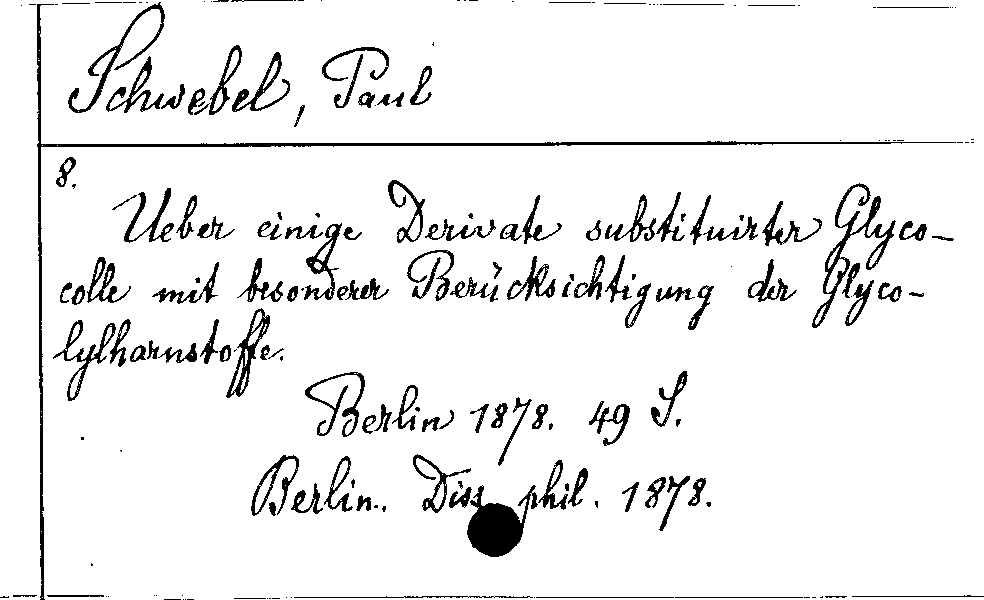 Schwebel, Paul
8.
Ueber einige Derivate substituirter Glyco-
colle mit besonderer Berücksichtigung der Glyco-
lylharnstoffe.
Berlin 1878. 49 S.
Berlin. Diss. phil. 1878.